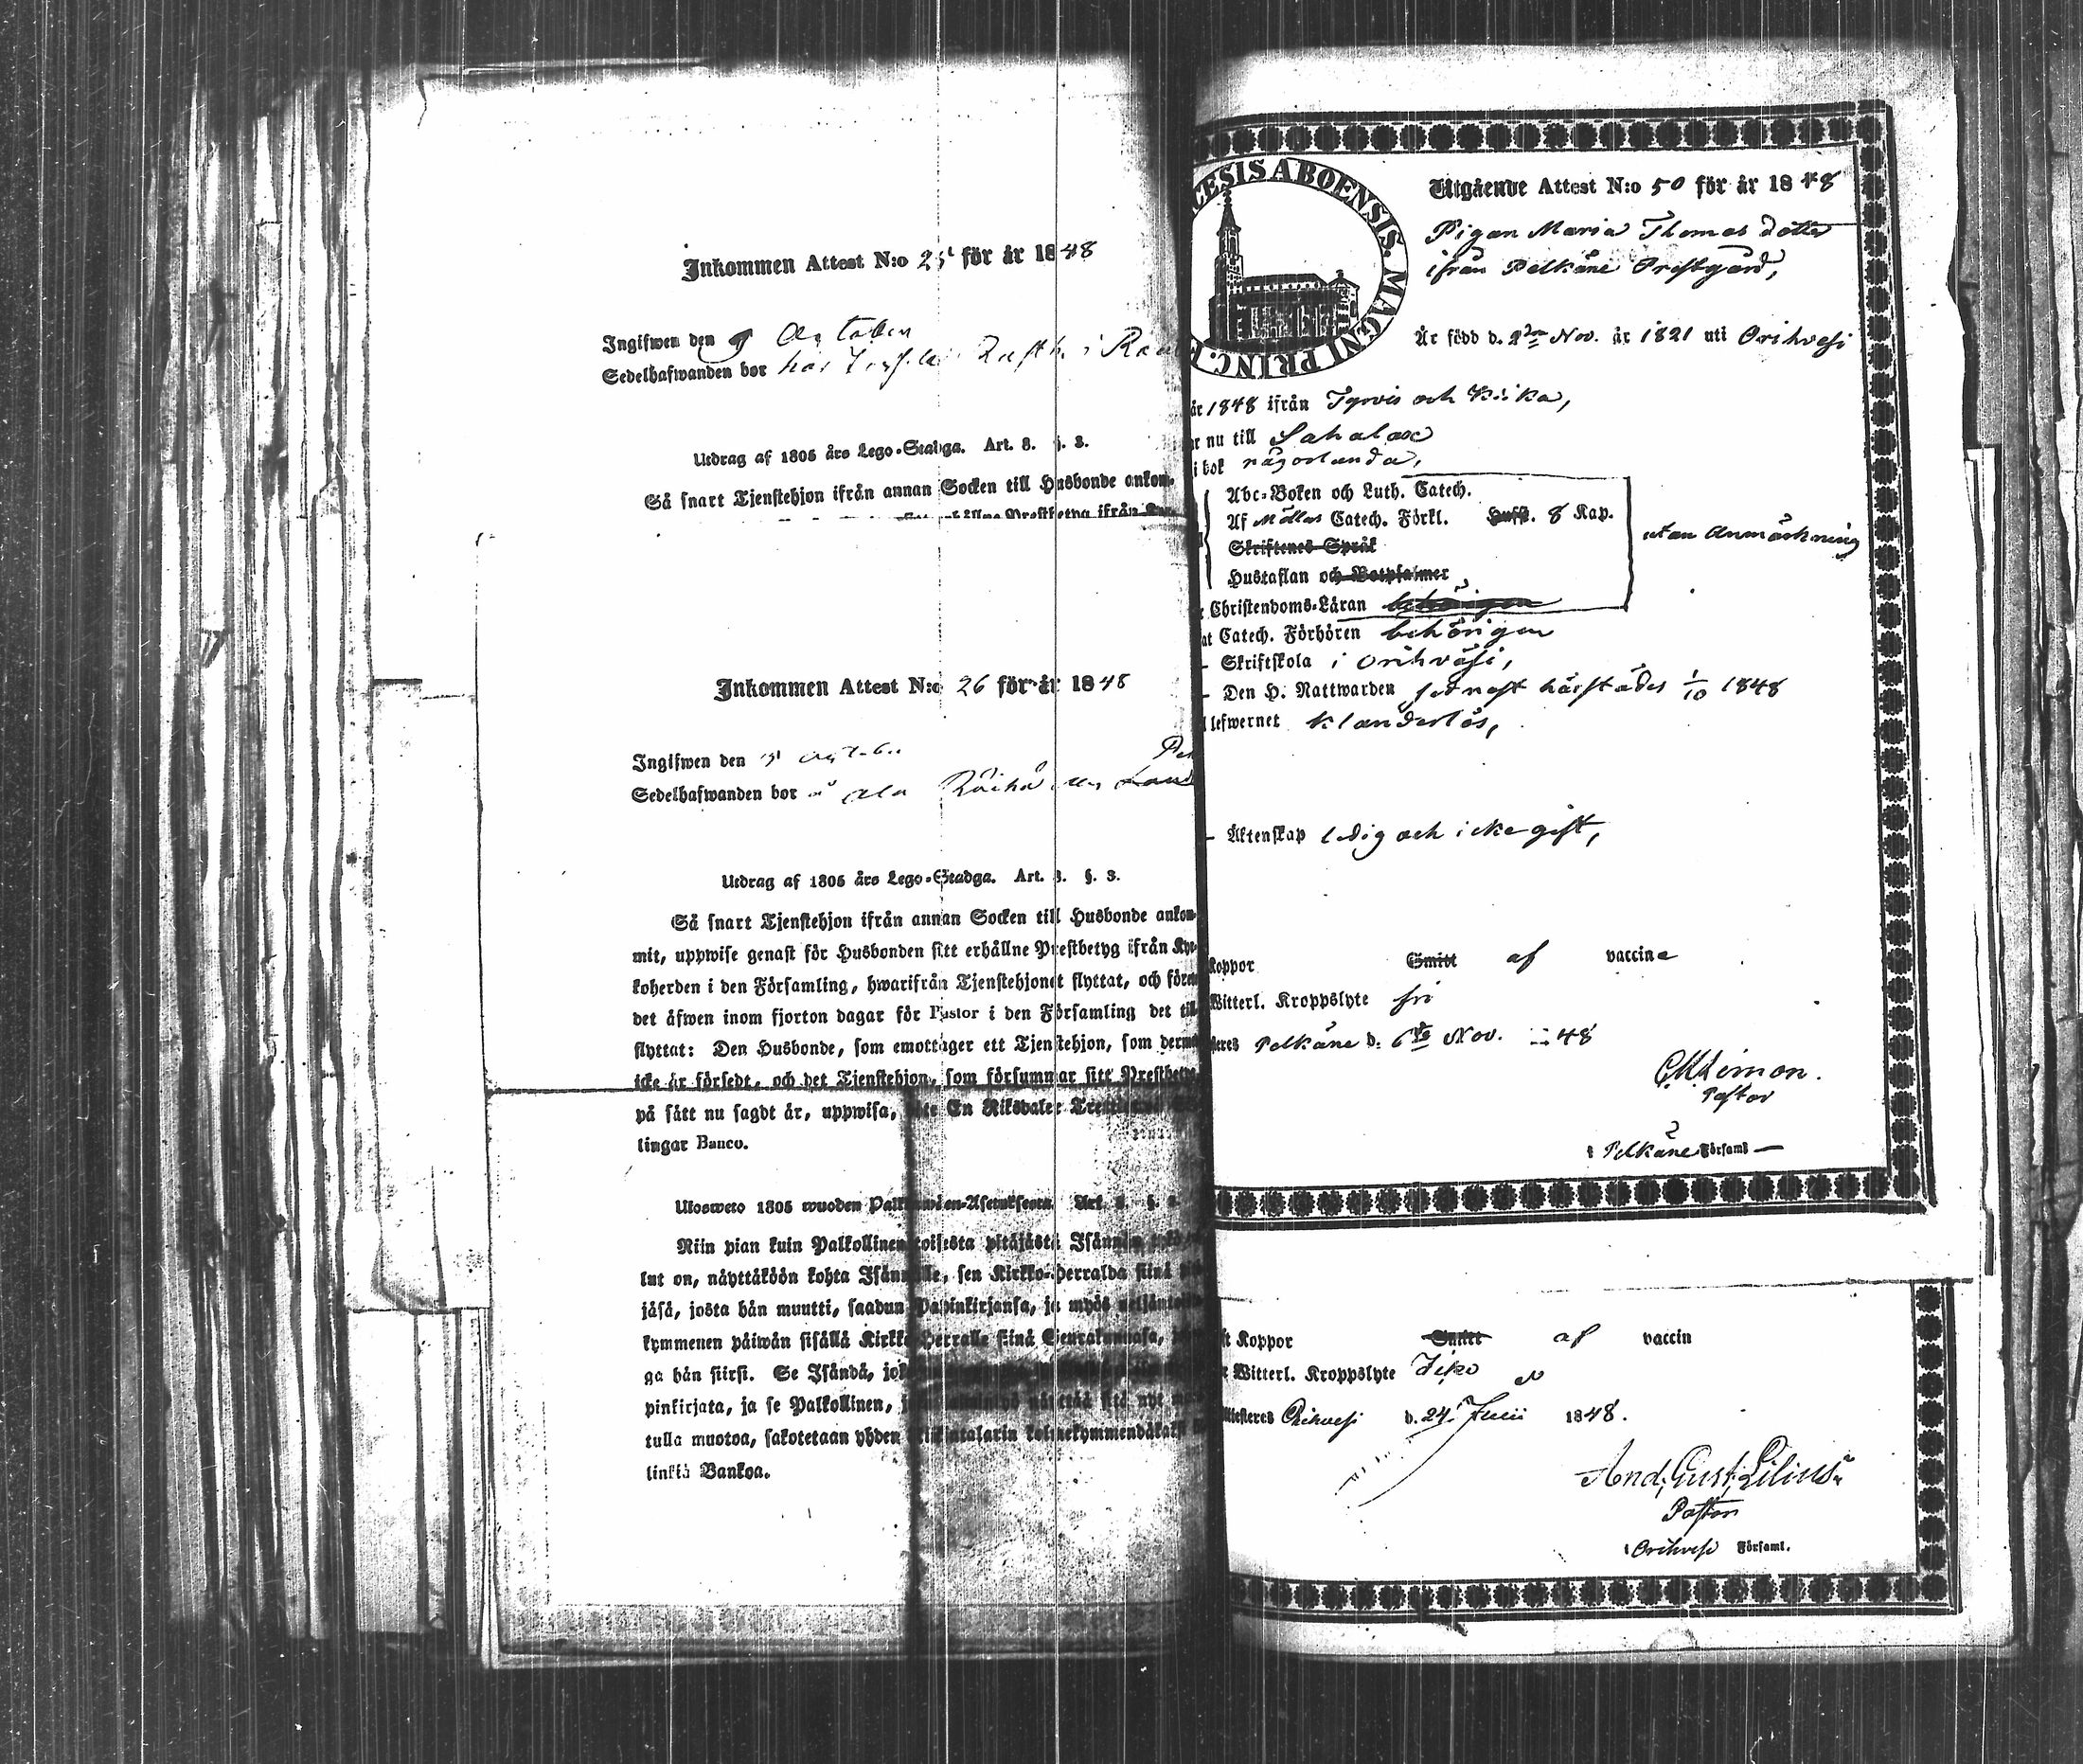 Inkommen Attest N:o 25 för år 1848
Ingifwen den 9 October
Sedelhafwanden bor hos
Utdrag af 1805 års Lego-Stadga. Art. 8. §. 3.
Så snart Tjenstehjon ifrån annan Socken till Husbonde ankom-
Inkommen Attest N:o 26 för år 1848
Ingifwen den
Sedelhafwanden bor å Ala Räihä
Utdrag af 1805 års Lego-Stadga. Art. 8. §. 3.
Så snart Tjenstehjon ifrån annan Socken till Husbonde ankom-
mit, uppwise genast för Husbonden sitt erhållne Prestbetyg ifrån Kyr-
koherden i den Församling, hwarifrån Tjenstehjonet flyttat, och före
det äfwen inom fjorton dagar för Pastor i den Församling det till-
flyttat: Den Husbonde, som emottager ett Tjenstehjon, som derme
icke är försedt, och det Tjenstehjon, som försummar sitt Prestbetyg
på sätt nu sagdt är, uppwisa, En Riksdaler
lingar Banco.
Ulosweto 1805 wuoden Palkollisten-Asetuksesta. Art. 8. §.
Niin pian kuin Palkollinen toisesta pitäjästä Isännän
lut on, näyttäköön kohta Isännälle, sen Kirkko-Herralda siinä
jäsä, josta hän muutti, saadun Papinkirjansa, ja myös neljäntoista
kymmenen päiwän sisällä Kirkko-Herralle siinä Seurakunnasa,
ga hän siirsi. Se Isändä, jo
pinkirjata, ja se Palkollinen,
tulla muotoa, sakotetaan yhden
linkiä Bankoa.
CESIS ABOENSIS. MAGNI PRINC. F
Utgående Attest N:o 50 för år 1848
Pigan Maria Thomas dotter
ifrån Pelkäne Prestgård,
Är född d. 2dra Nov. år 1821 uti Orihvesi
år 1848 ifrån Tyrvis och Kiika,
r nu till Sahalax
i bok någorlunda,
Abc-Boken och Luth. Catech.
Af Möllers Catech. Förkl. 8 Kap.
utan Anmärkning
Skriftenes Språk
Hustaflan och Botpsalmer
Christendoms-Läran behörigen
at Catech. Förhören behörigen
Skriftskola i Orihväsi,
Den H. Nattwarden sednast härstädes 1/10 1848
lefwernet klanderlös,
Äktenskap ledig och icke gift,
Koppor Smitt af vaccine
Witterl. Kroppslyte fri
teres Pelkäne d. 6te Nov. 48
Pastor
i Pelkäne Församl
st Koppor Smitt af vaccin
r Witterl. Kroppslyte
Attesteres Orihvesi d. 24. Junii 1848.
And. Gust. Lilius
Pastor
i Orihvesi Församl.